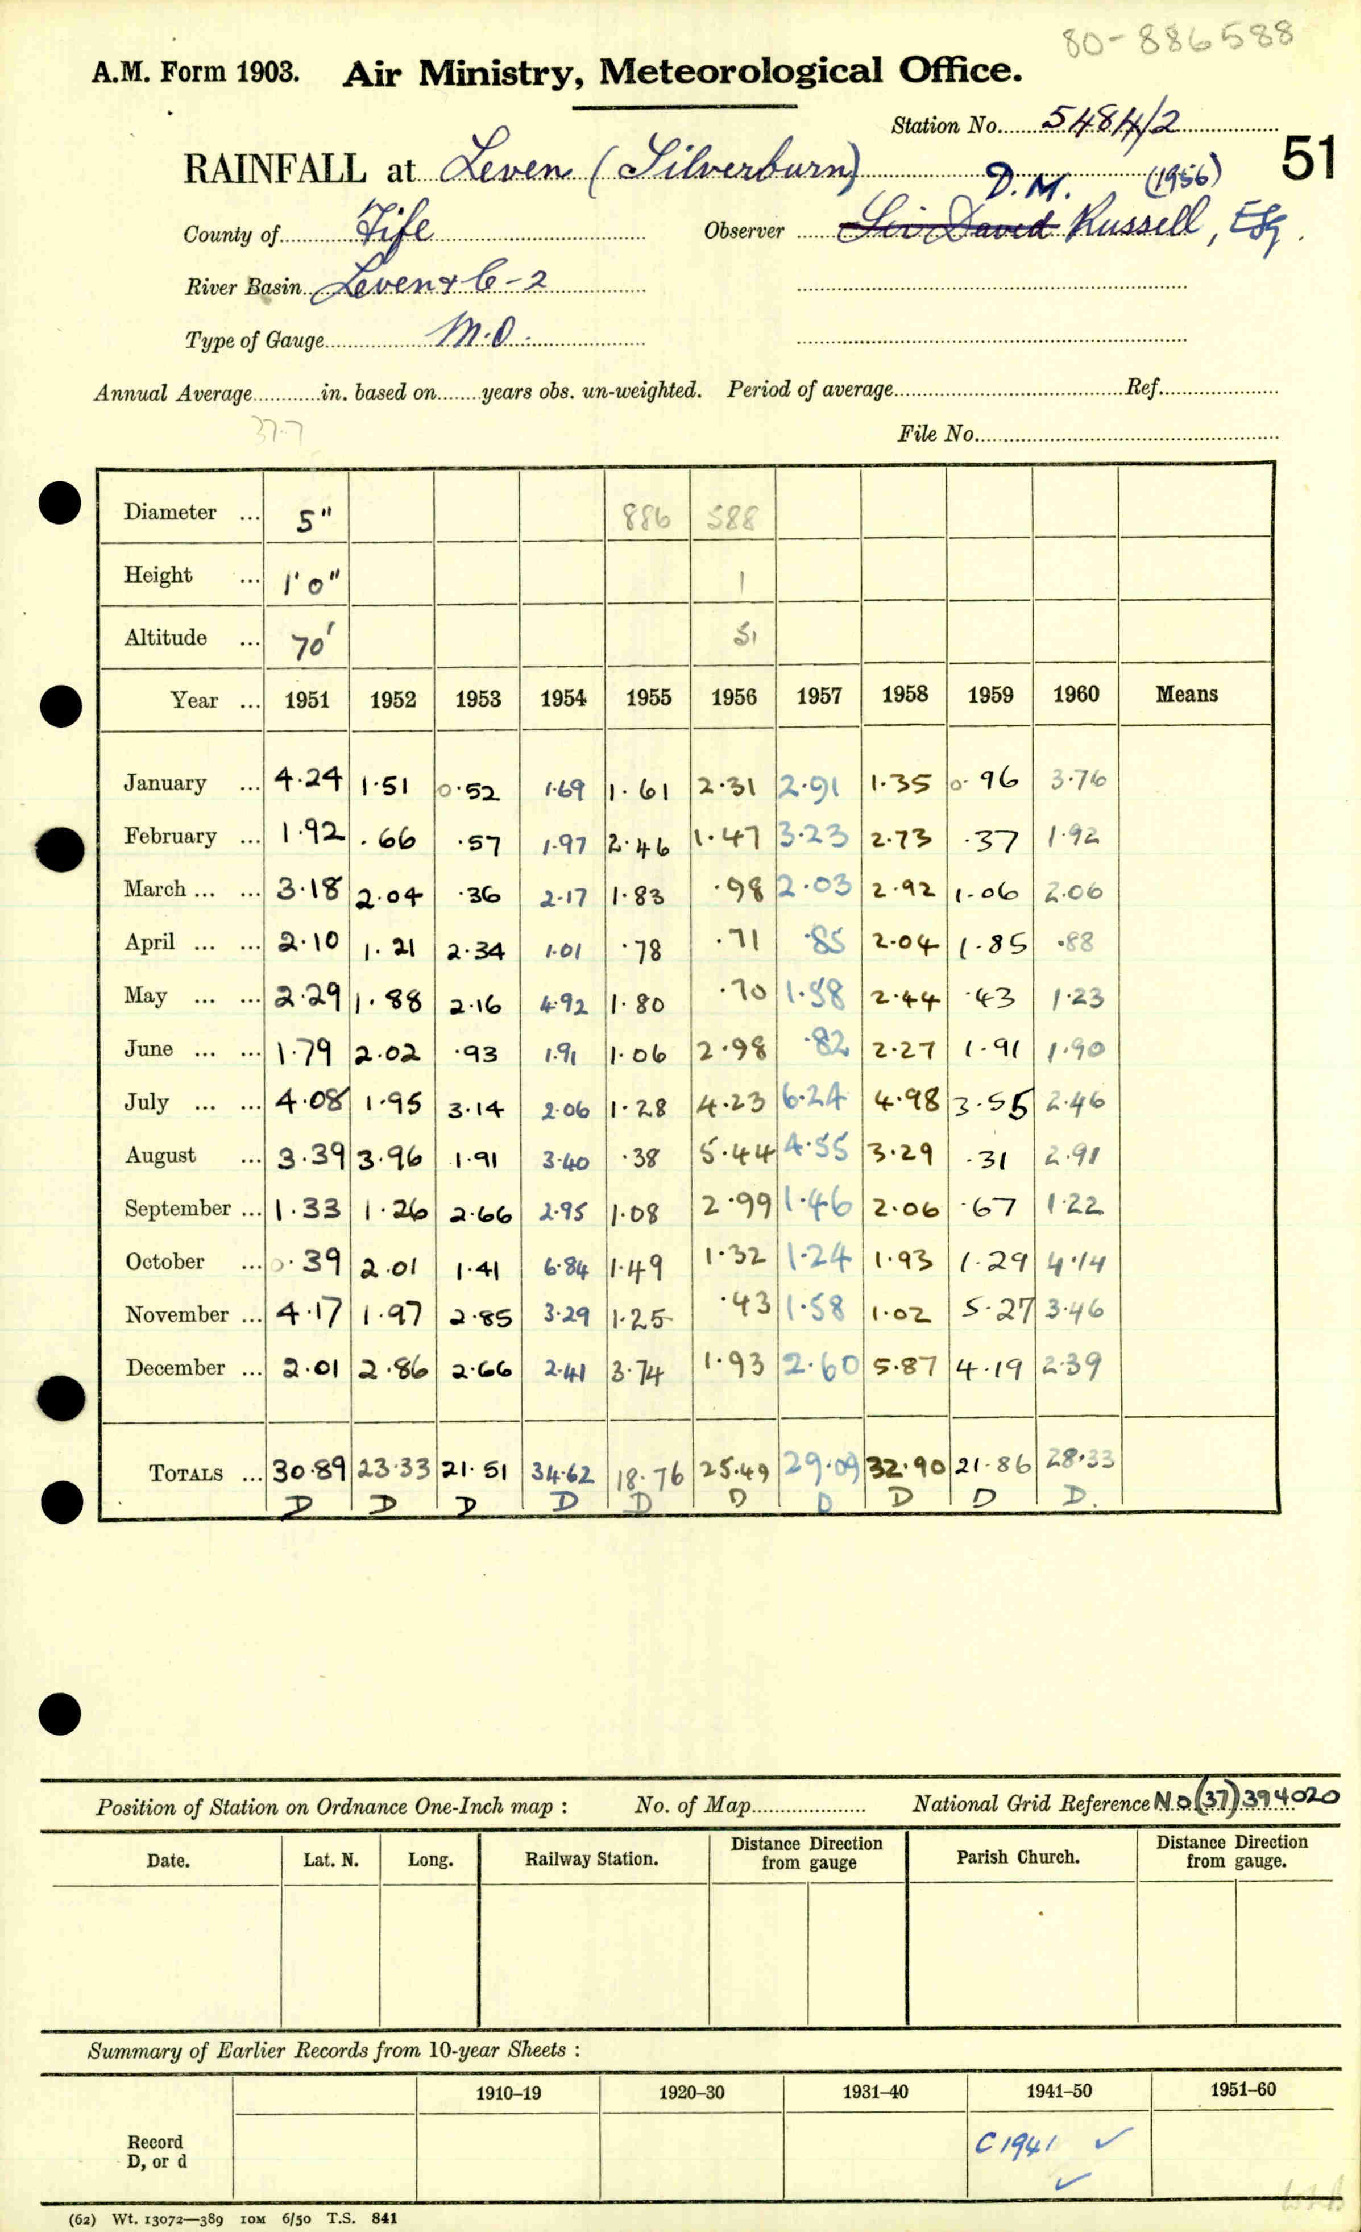 80-886588
A.M. Form 1903. Air Ministry, Meteorological Office.
Station No. 5484/2
RAINFALL at Leven (Silverburn) D.M. (1956) 51
County of Fife Observer Sir David Russell, Esq.
River Basin Leven & C-2
Type of Gauge M.O.
Annual Average in. based on years obs. un-weighted. Period of average Ref.
37.7 File No.
Diameter ... 5" 886 588
Height ... 1'0" 1
Altitude ... 70' 51
Year ... 1951 1952 1953 1954 1955 1956 1957 1958 1959 1960 Means
January ... 4.24 1.51 0.52 1.69 1.61 2.31 2.91 1.35 0.96 3.76
February ... 1.92 .66 .57 1.97 2.46 1.47 3.23 2.73 .37 1.92
March ... ... 3.18 2.04 .36 2.17 1.83 .98 2.03 2.92 1.06 2.06
April ... ... 2.10 1.21 2.34 1.01 .78 .71 .85 2.04 1.85 .88
May ... ... 2.29 1.88 2.16 4.92 1.80 .70 1.58 2.44 .43 1.23
June ... ... 1.79 2.02 .93 1.91 1.06 2.98 .82 2.27 1.91 1.90
July ... ... 4.08 1.95 3.14 2.06 1.28 4.23 6.24 4.98 3.55 2.46
August ... 3.39 3.96 1.91 3.40 .38 5.44 4.55 3.29 .31 2.91
September ... 1.33 1.26 2.66 2.95 1.08 2.99 1.46 2.06 .67 1.22
October ... 0.39 2.01 1.41 6.84 1.49 1.32 1.24 1.93 1.29 4.14
November ... 4.17 1.97 2.85 3.29 1.25 .43 1.58 1.02 5.27 3.46
December ... 2.01 2.86 2.66 2.41 3.74 1.93 2.60 5.87 4.19 2.39
TOTALS ... 30.89 23.33 21.51 34.62 18.76 25.49 29.09 32.90 21.86 28.33
D D D D D D D D D D.
Position of Station on Ordnance One-Inch map : No. of Map National Grid Reference NO(37)394020
Date. Lat. N. Long. Railway Station. Distance Direction from gauge Parish Church. Distance Direction from gauge.
Summary of Earlier Records from 10-year Sheets :
1910–19 1920–30 1931–40 1941–50 1951–60
Record D, or d C 1941 ✓
✓
(62) Wt. 13072—389 10M 6/50 T.S. 841